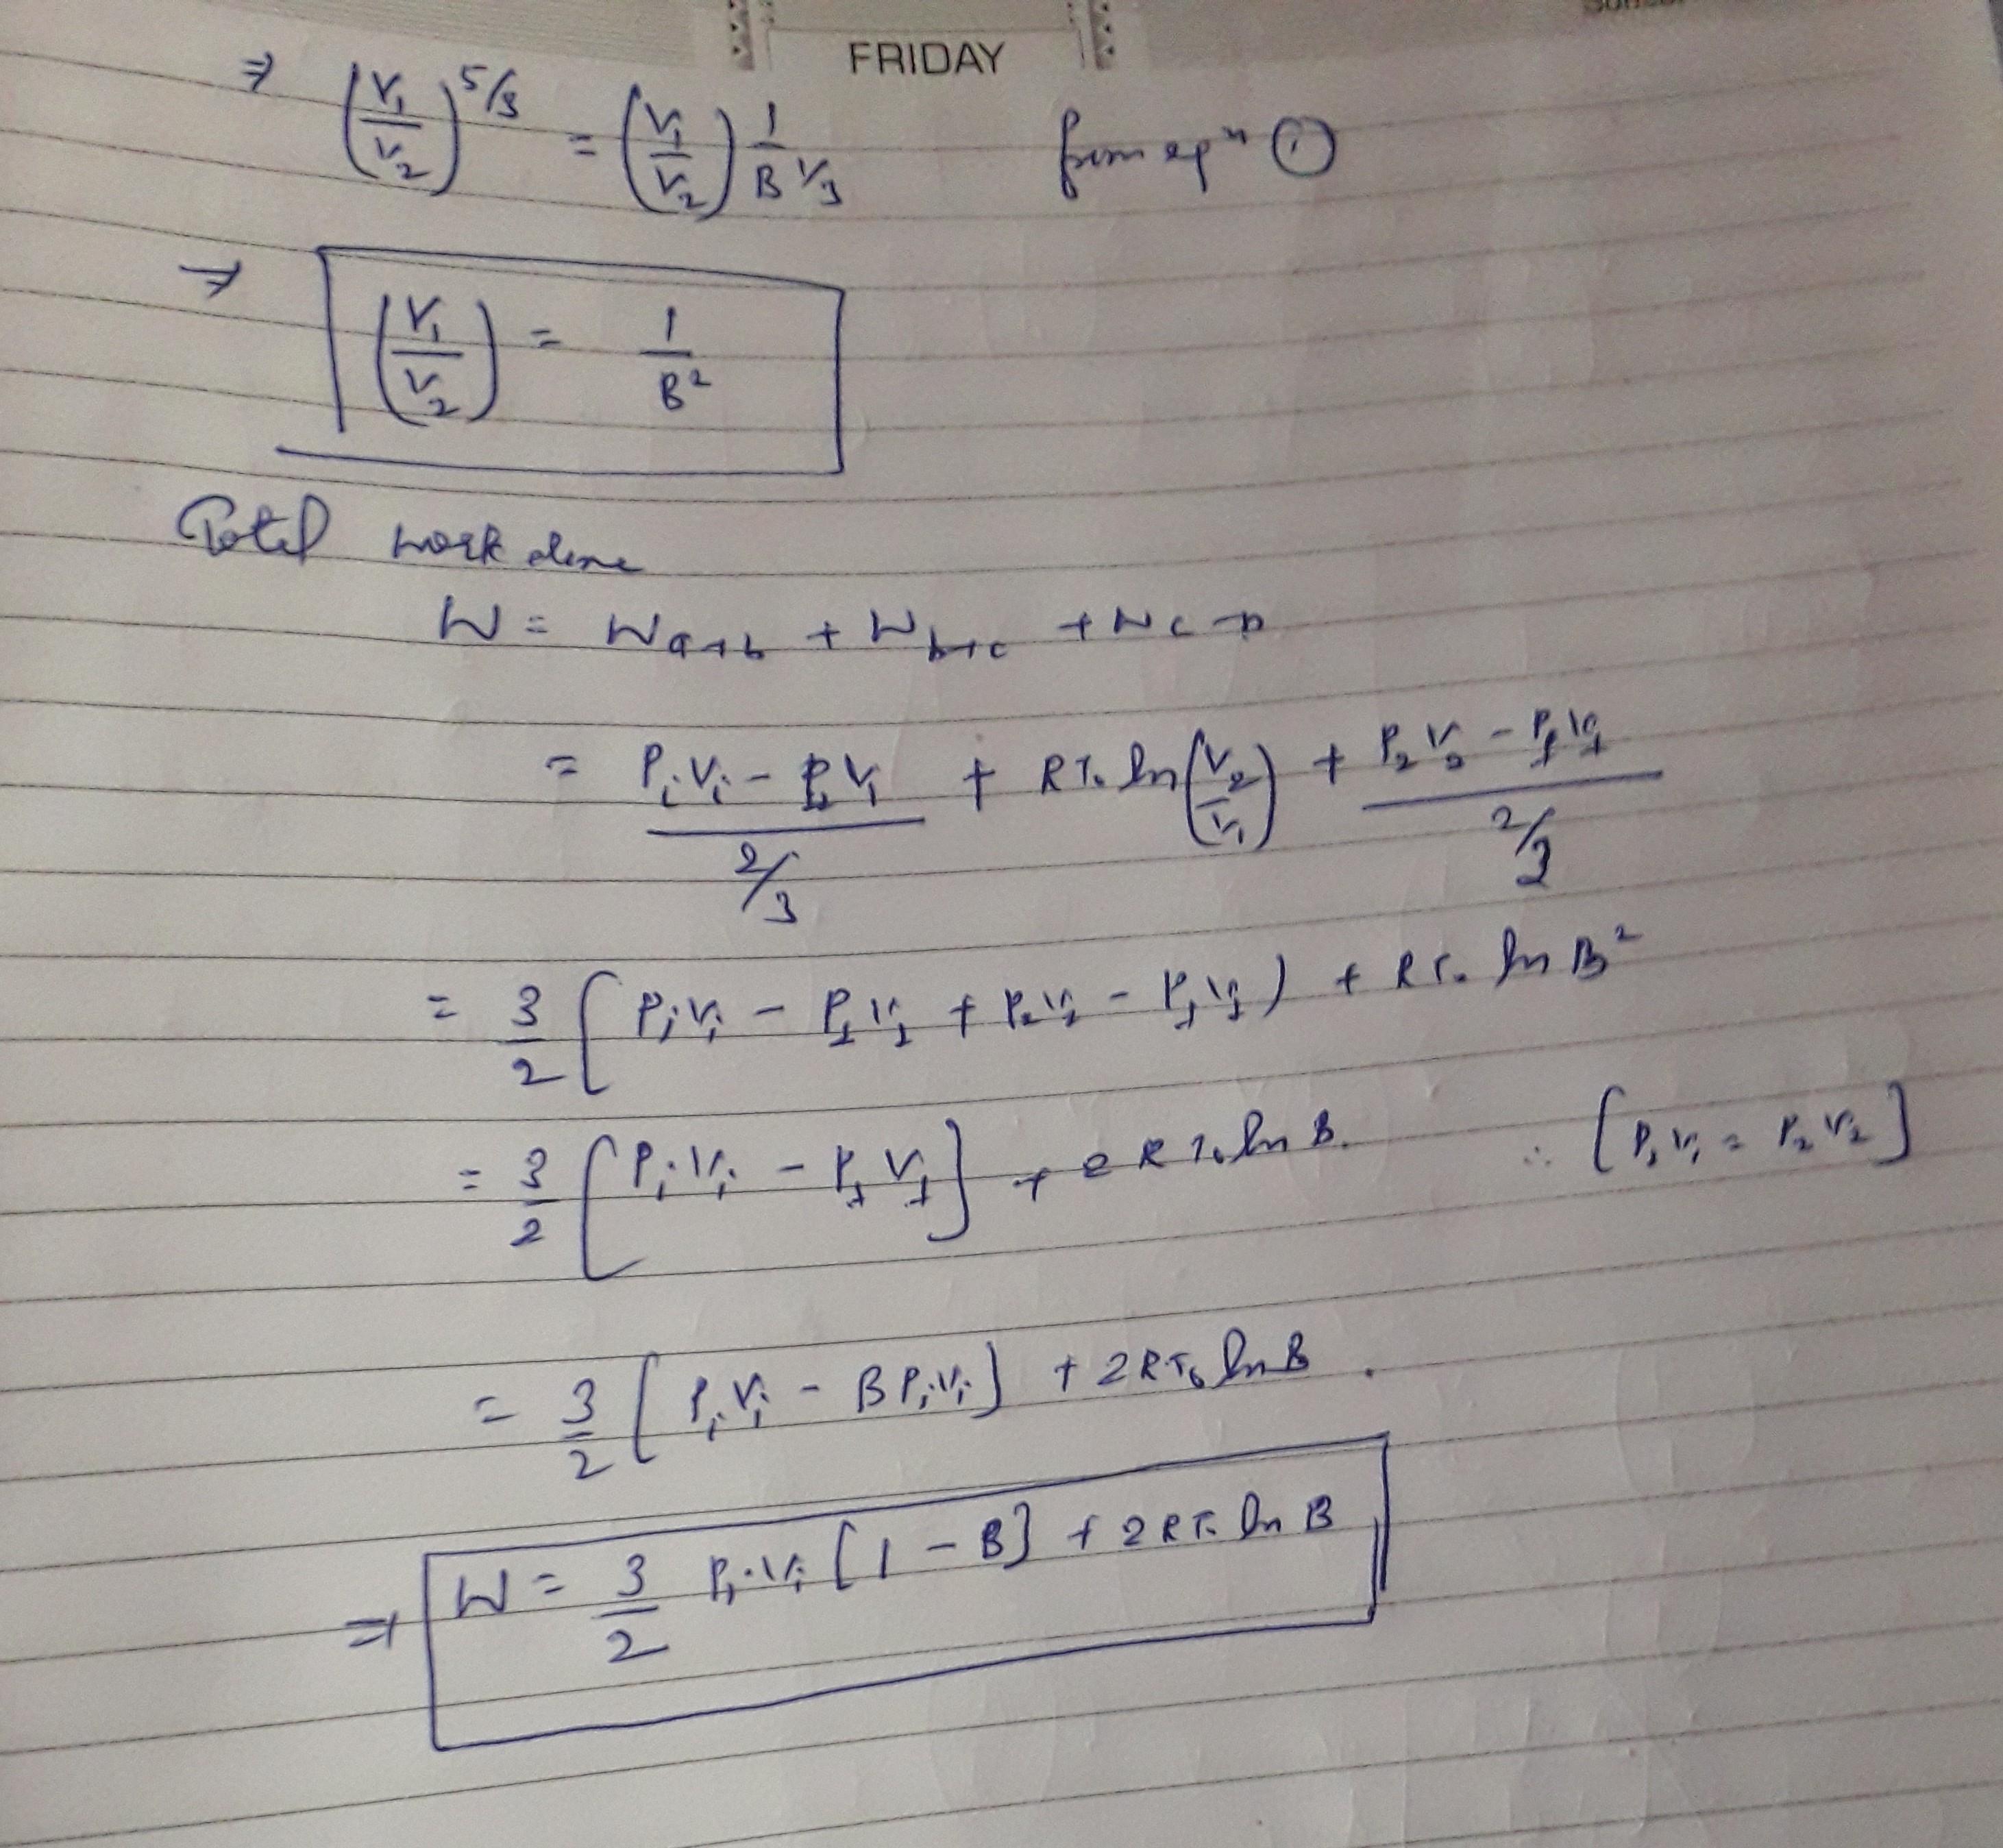 FRIDAY
⇒ (V₁/V₂)^5/3 = (V₁/V₂) 1/B^1/3 from eqⁿ ①
⇒ (V₁/V₂) = 1/B²
Total work done
W = W a→b + W b→c + W c→D
= PᵢVᵢ - P₁V₁ / 2/3 + RT₀ ln(V₂/V₁) + P₂V₂ - P_fV_f / 2/3
= 3/2 [PᵢVᵢ - P₁V₁ + P₂V₂ - P_fV_f) + RT₀ ln B²
= 3/2 [PᵢVᵢ - P_fV_f] + 2RT₀ ln B. ∴ [P₁V₁ = P₂V₂]
= 3/2 [PᵢVᵢ - BPᵢVᵢ] + 2RT₀ ln B.
⇒ W = 3/2 PᵢVᵢ [1 - B] + 2RT₀ ln B